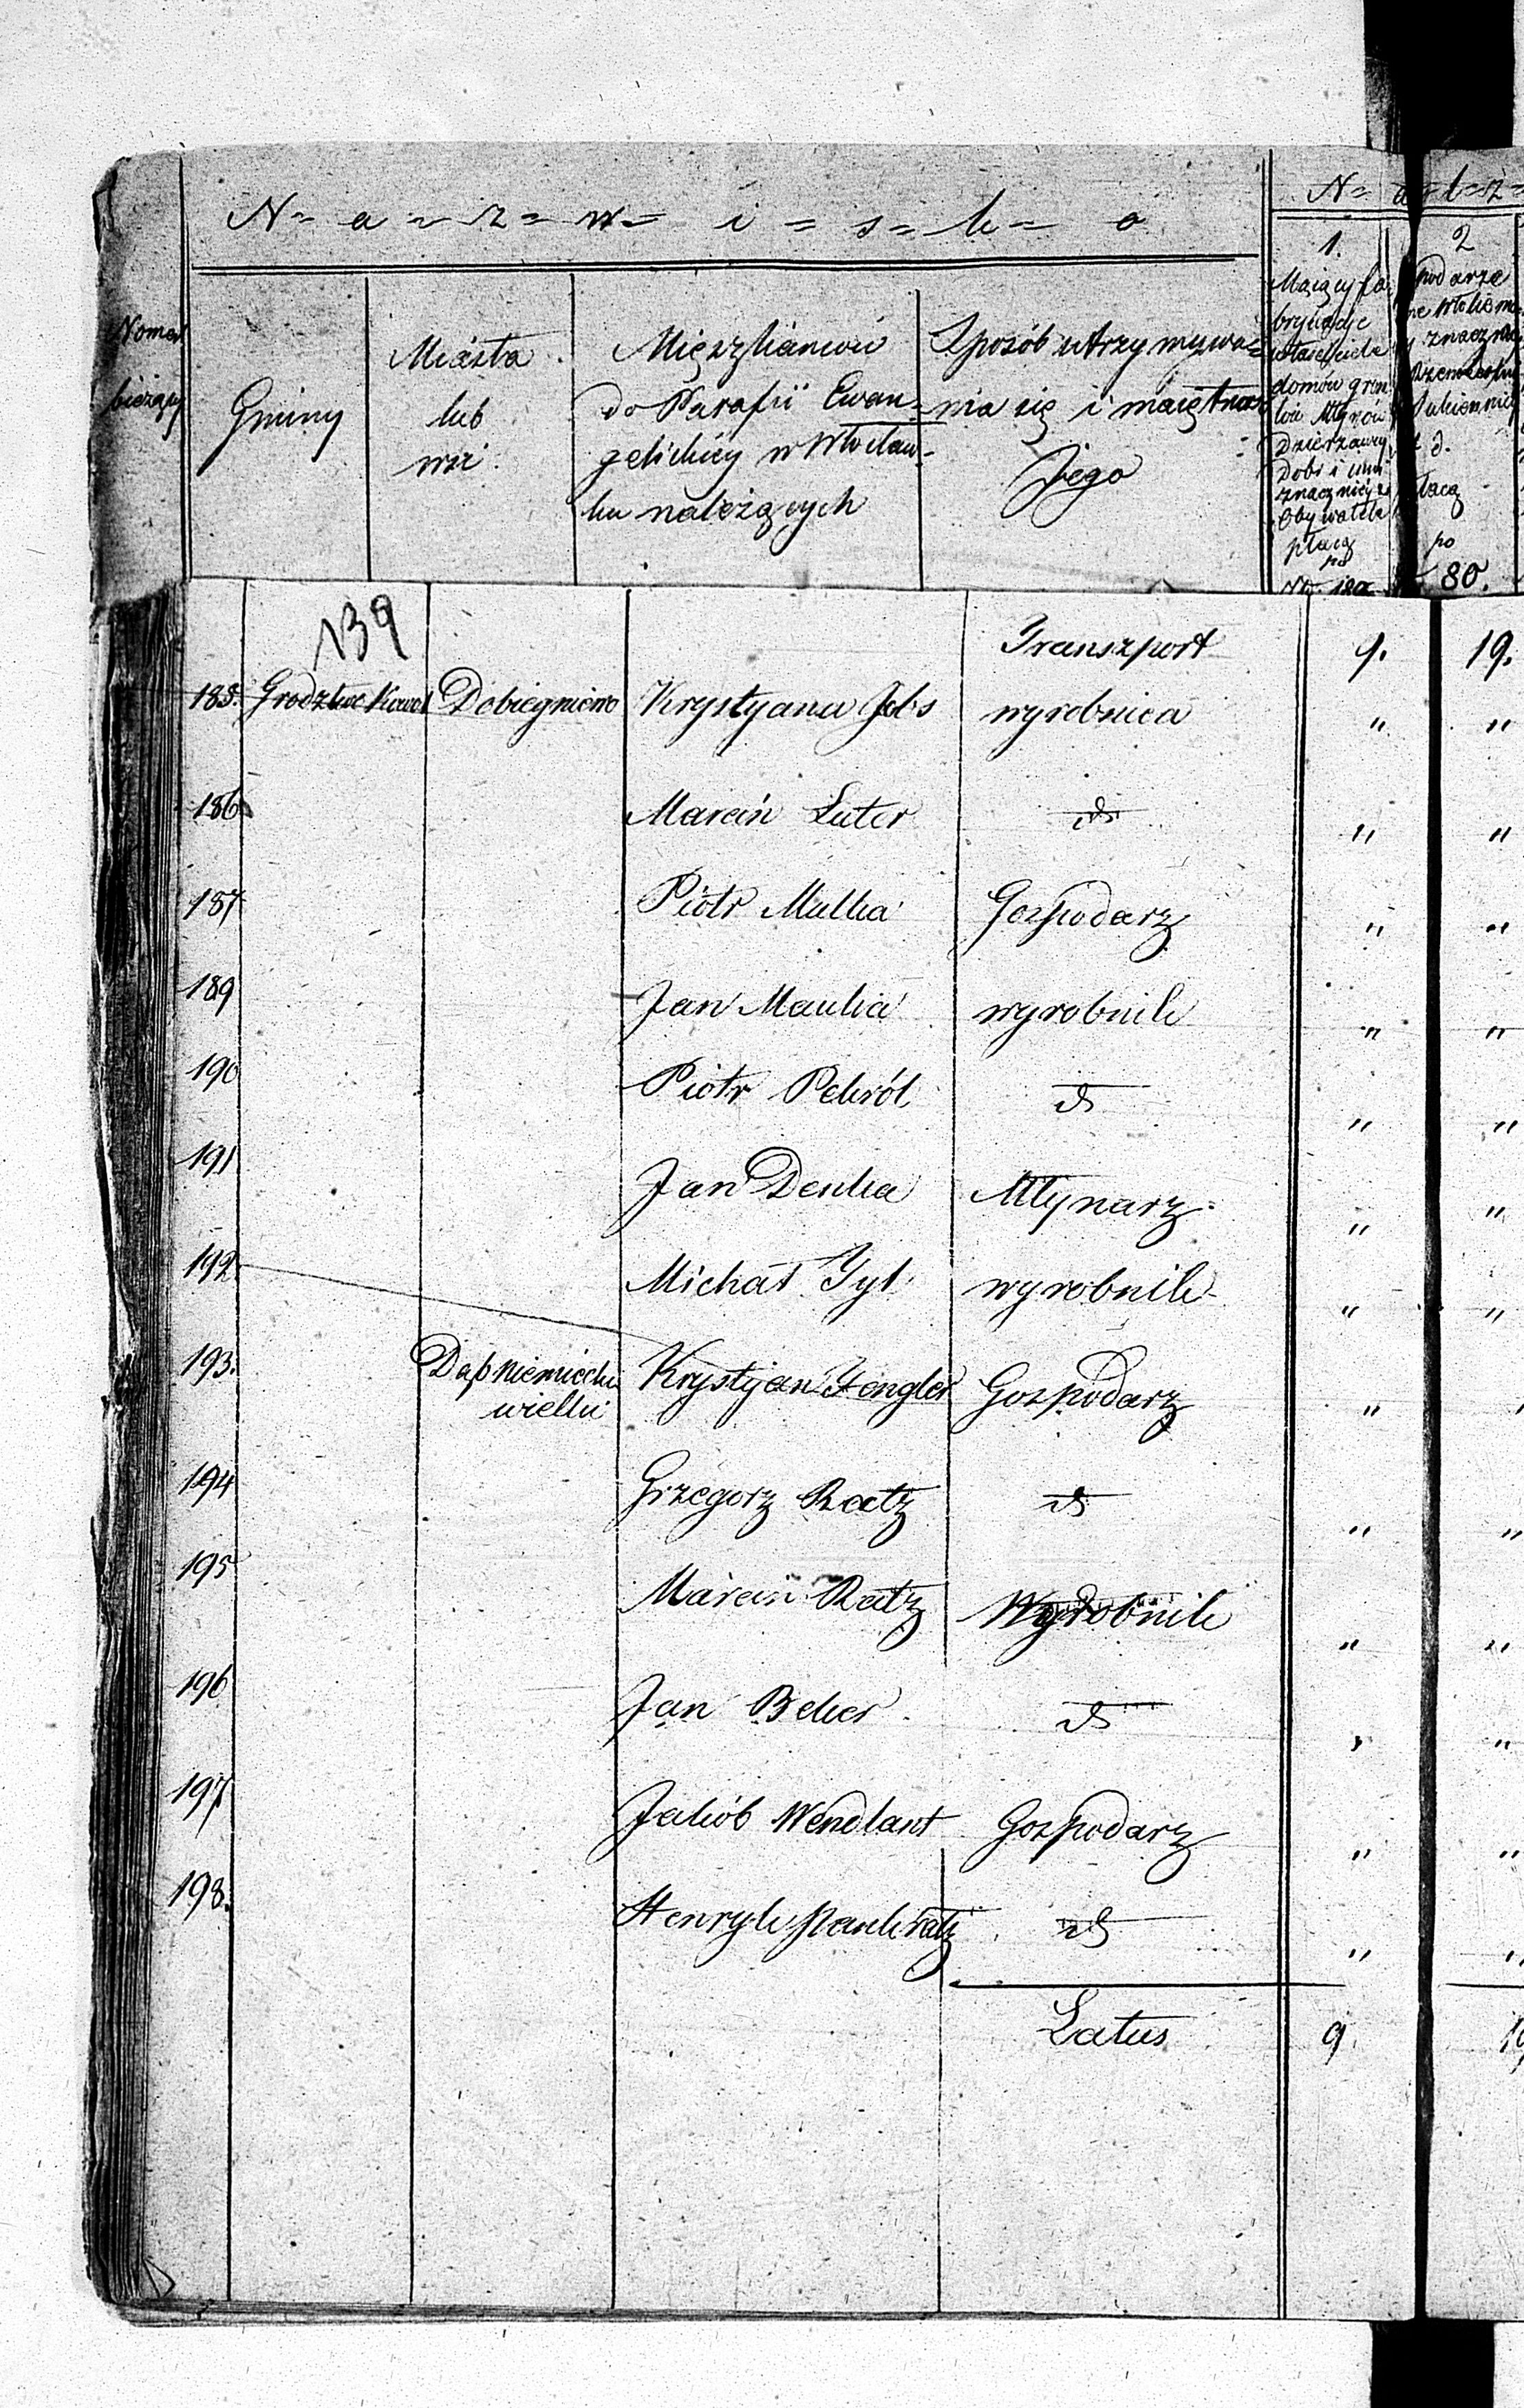 N= a = z = w = i = s = k = o
Numer
bieżący
Gminy
Miasta
lub
wsi
Mięszkańców
do Parafii Ewan=
gelickiey w Włocław=
ku należących
Sposób utrzymywa=
nia się i maiętność
Jego
1.
Maiący fa
bryki
właściciele
domów grun
Dzierzawcy
Dobr i inni
znacznieysi
Obywatele
płacą
po
2
płacą
po
80.
139
Transzport 9. 19.
185. Grodztwo Kowal Dobiegniewo Krystyana Jobs wyrobnica " "
186 Marcin Luter d " "
187 Piotr Mulka Gospodarz " "
189 Jan Maulka wyrobnik " "
190 Piotr Pekról d " "
191 Jan Denka Młynarz " "
192 Michał Tyl wyrobnik " "
193. Dąb niemiecki Krystyan Fengler Gospodarz "
wielki
194 Grzegorz Ratz d " "
195 Marcin Ratz Wyrobnik " "
196 Jan Beker d " "
197 Jakób Wendlant Gospodarz " "
198. Henryk Pankratz d " "
Latus 9. 19